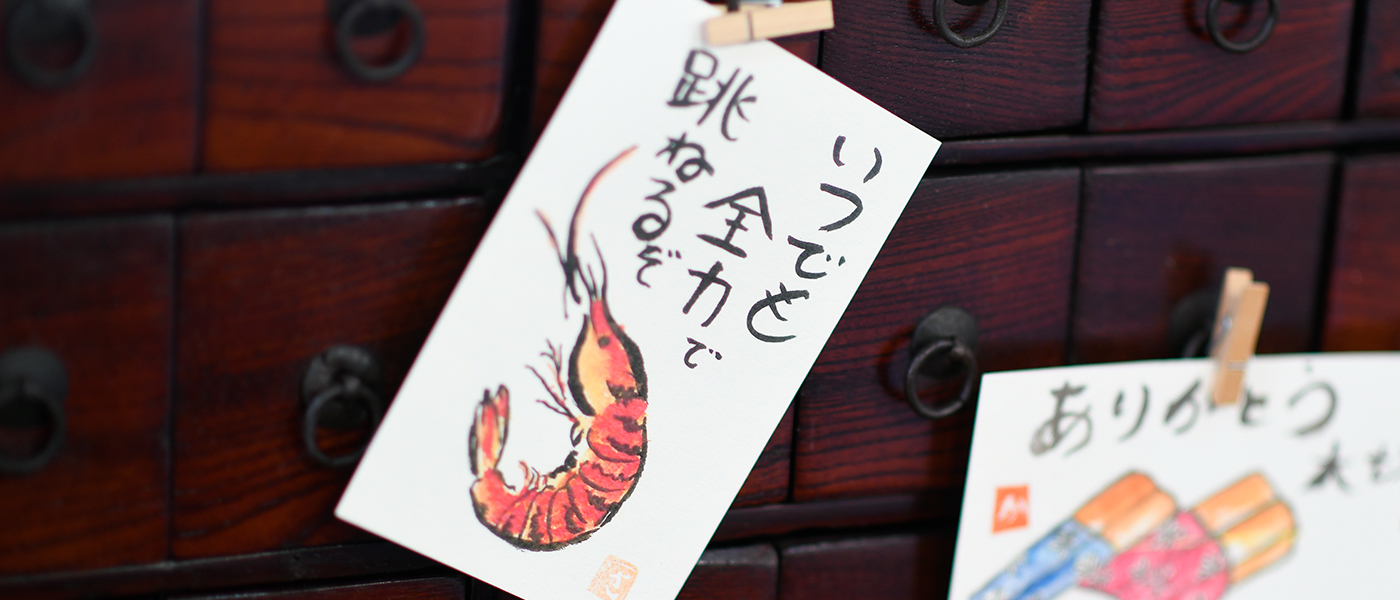 いつでも
全力で
跳ねるぞ
ありがとう